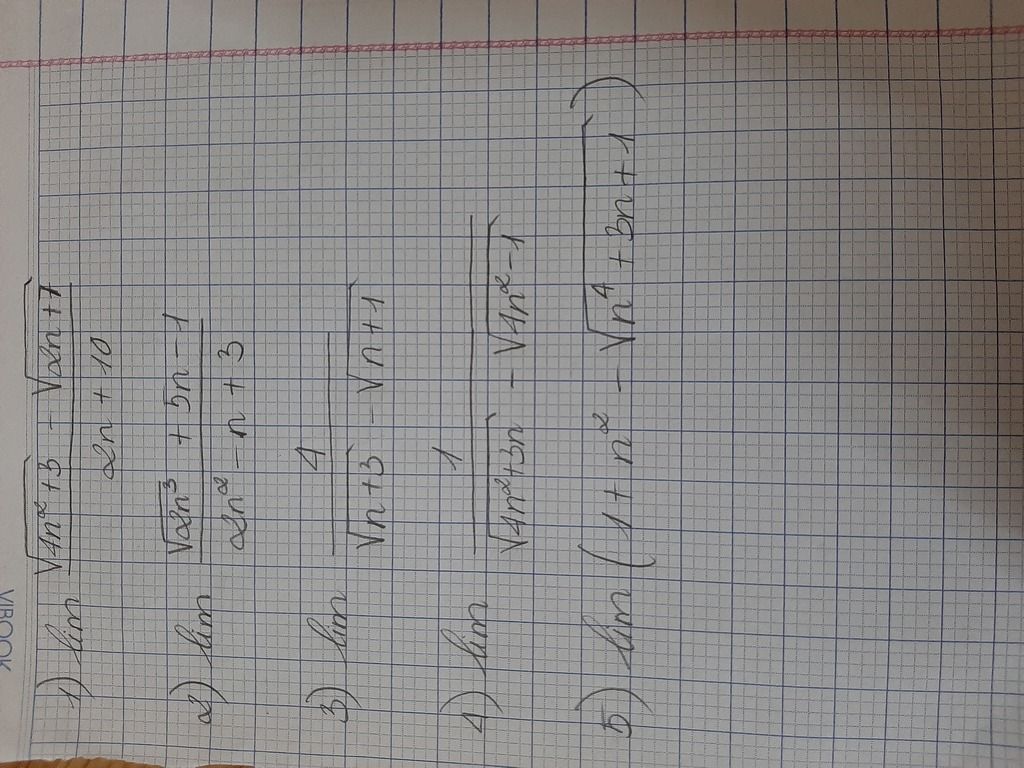 1) lim (√(4n²+3) - √(2n+7)) / (2n+10)
2) lim (√(2n³) + 5n - 1) / (2n² - n + 3)
3) lim 4 / (√(n+3) - √(n+1))
4) lim 1 / (√(4n²+3n) - √(4n²-1))
5) lim (1 + n² - √(n⁴ + 3n + 1))
VBOOK